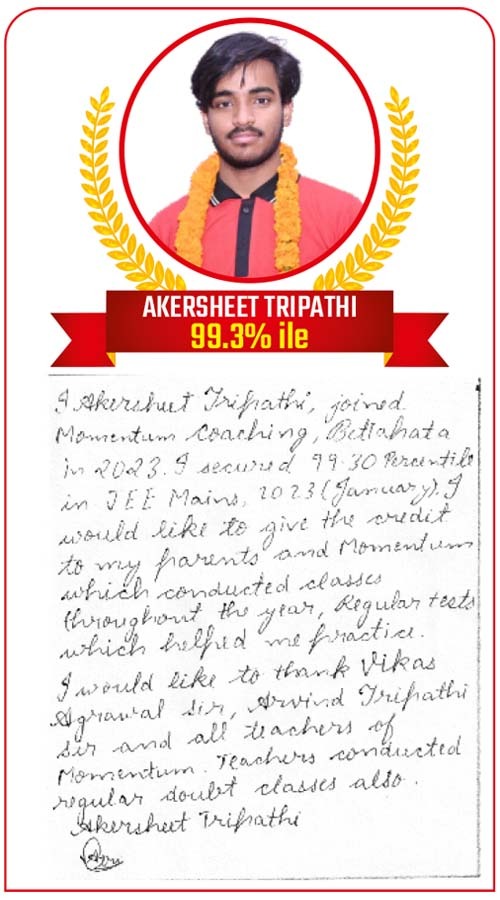 AKERSHEET TRIPATHI
99.3% ile
I Akersheet Tripathi, joined
Momentum Coaching, Betiahata
in 2023. I secured 99.30 Percentile
in JEE Mains, 2023 (January). I
would like to give the credit
to my parents and Momentum
which conducted classes
throughout the year, Regular tests
which helped me practice.
I would like to thank Vikas
Agrawal sir, Arvind Tripathi
sir and all teachers of
Momentum. Teachers conducted
regular doubt classes also.
Akersheet Tripathi